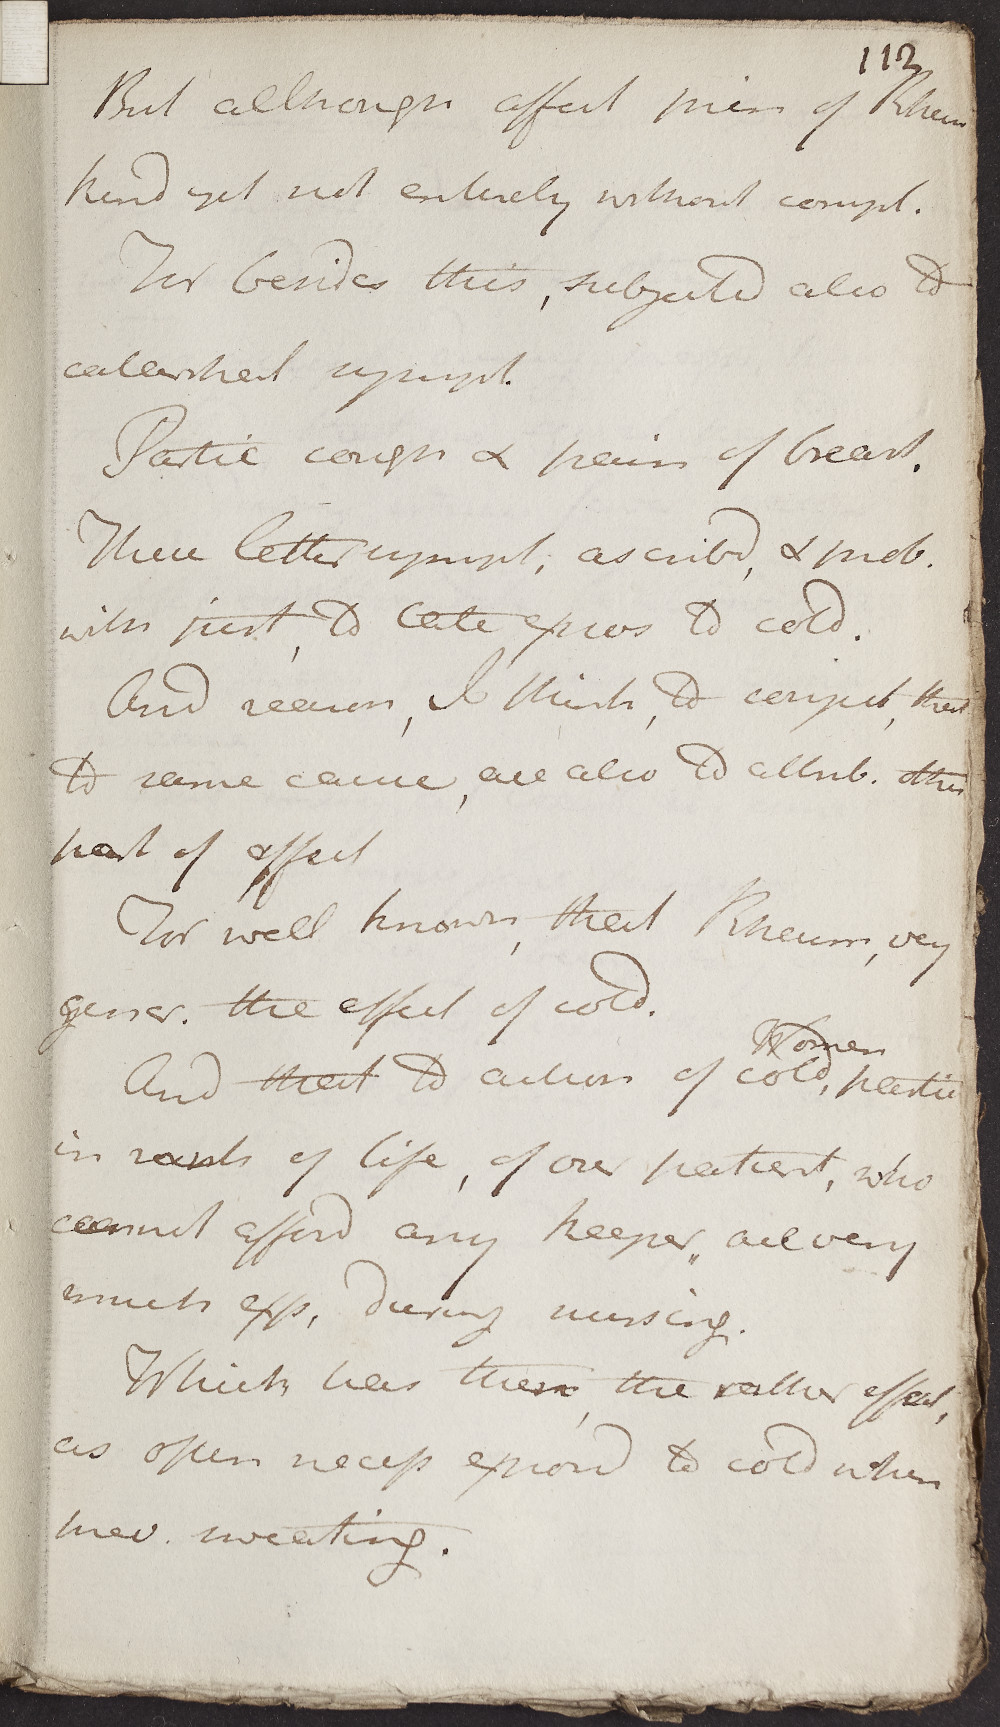 113
But although affect prim of Rheum
kind yet not entirely without compl.
For besides this, subjected also to
catarrhal sympt.
Partic cough & pain of breast.
These latter sympt, ascribd, & prob.
with just, to late expos to cold.
And reason, I think, to conject, that
to same cause, are also to attrib. other
part of affect
For well known, that Rheum, very
gener. the effect of cold.
And that to action of cold, Women partic
in rank of life, of our patient, who
cannot afford any keeper, are very
much exp, during nursing.
Which has then, the rather effect,
as often necess exposd to cold when
prev. sweating.